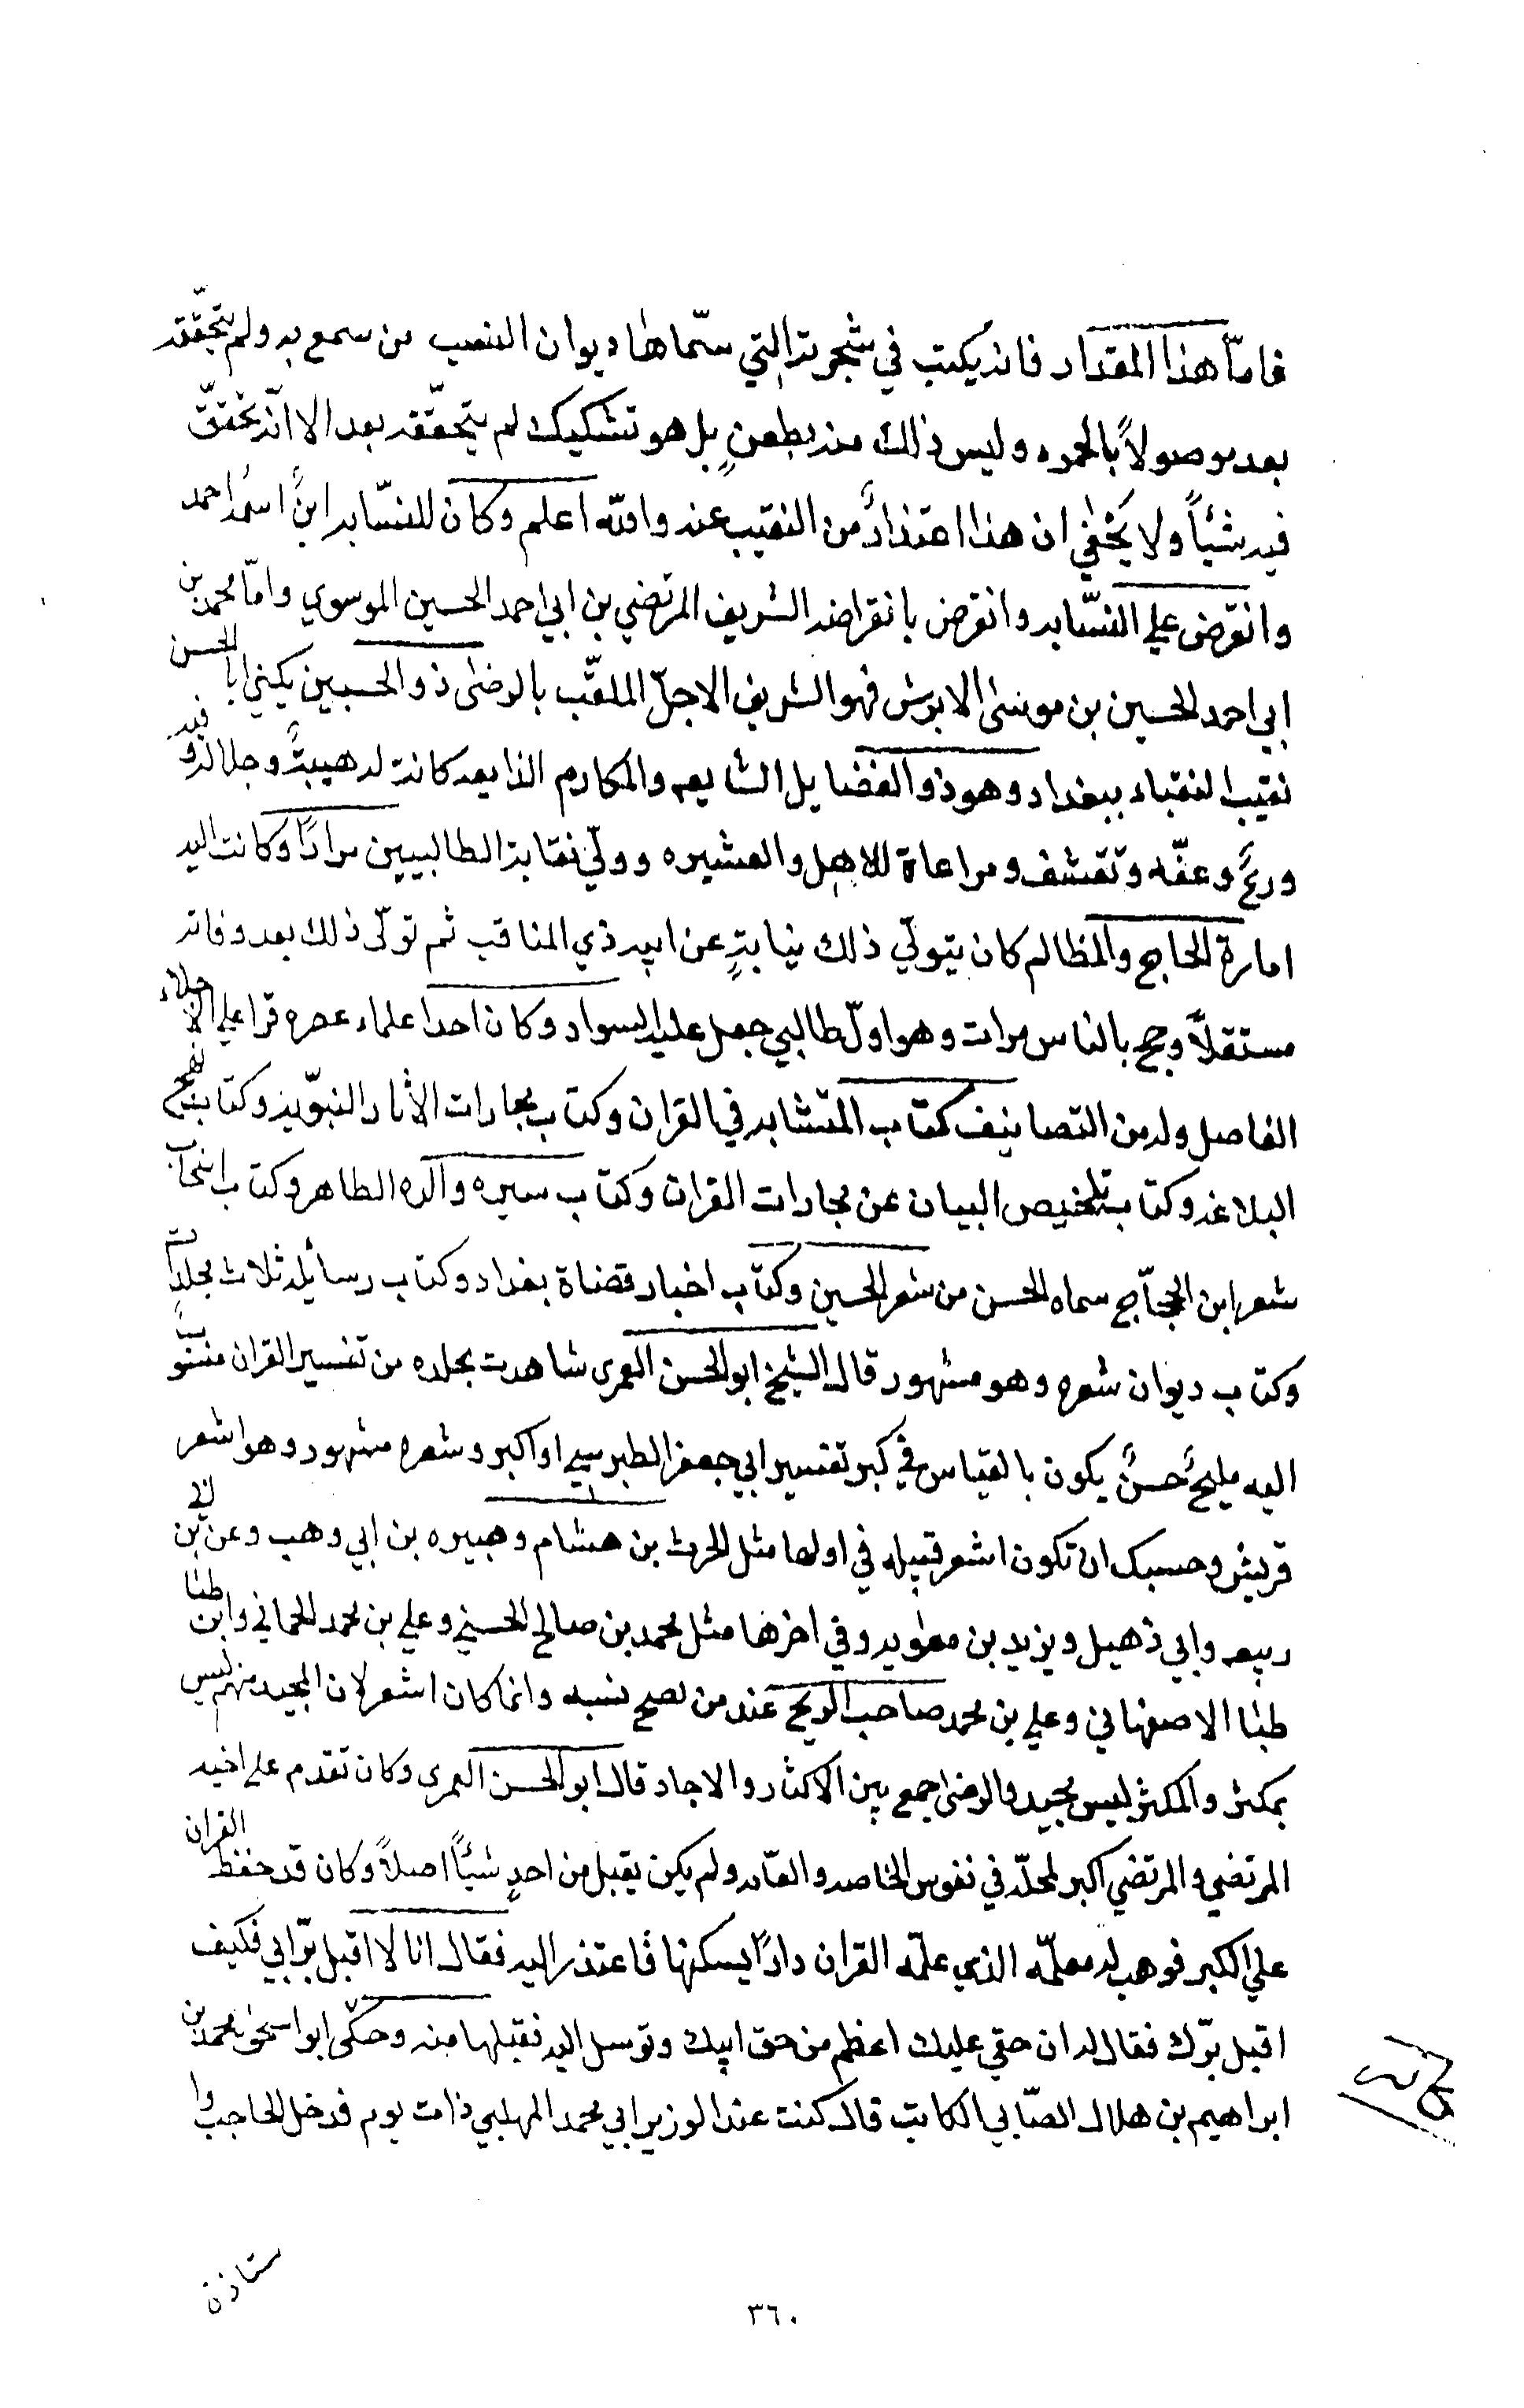 فامّا هذا المقدار فانه يكتب في شجرته التي سمّاها ديوان النسب من سمع به ولم يتحقّقه
بعد موصولاً بالحمره وليس ذلك منه بطعنٍ بل هو تشكيك لم يتحقّقه بعد الا انّه تحقّق
فيه شيئاً ولا يخفى ان هذا اعتذارٌ من النقيب عنه والله اعلم وكان للنسّابه ابنٌ اسمه احمد
وانقرض علي النسّابه وانقرض بانقراضه الشريف المرتضي بن ابي احمد الحسين الموسوي وامّا محمد بن
ابي احمد الحسين بن موسىٰ الابرش فهو الشريف الاجلّ الملقّب بالرضىٰ ذو الحسبين يكني ابا الحسن
نقيب النقباء ببغداد وهو ذو الفضايل الشايعه والمكارم الذايعه كانت له هيبةٌ وجلالة و فيه
ورعٌ وعفّه وتقشف ومراعاة للاهل والعشيره وولّي نقابة الطالبيين مرارًا وكانت اليه
امارة الحاج والمظالم كان يتولّي ذلك نيابةٍ عن ابيه ذي المناقب ثم تولّى ذلك بعد وفاته
مستقلاًّ وحج بالناس مرات وهو اول طالبي جعل عليه السواد وكان احد علماء عصره قرا علي الاجلاء
الفاضل وله من التصانيف كتاب المتشابه في القران وكتاب مجارات الاثار النبوّيه وكتاب نهج
البلاغه وكتاب تلخيص البيان عن مجارات القران وكتاب سيره والده الطاهر وكتاب انتخاب
شعر ابن الحجّاج سماه الحسن من شعر الحسين وكتاب اخبار قضاة بغداد وكتاب رسائله ثلاث مجلدات
وكتاب ديوان شعره وهو مشهور قال الشيخ ابو الحسن العمرى شاهدت مجلده من تفسير القران منسوب
اليه مليحٌ حسنٌ يكون بالقياس في كبر تفسير ابي جعفر الطبرسي او اكبر وشعره مشهور وهو اشعر
قريش وحسبك ان تكون اشعر قبيله في اولها مثل الحرث بن هشام وهبيره بن ابي وهب وعمر بن ابي
ربيعه وابي ذهيل ويزيد بن معٰويه وفي اخرها مثل محمد بن صالح الحسني وعلي بن محمد الحماني وابن طبا
طبا الاصفهاني وعلي بن محمد صاحب الريح عند من يصح نسبه وانما كان اشعر لان المجيد منهم ليس
بمكثر والمكثر ليس بمجيد والرضى جمع بين الاكثار والاجاد قال ابو الحسن العمرى وكان تقدم علي اخيه
المرتضي والمرتضي اكبر لمحلّه في نفوس الخاصه والعامّه ولم يكن يقبل من احدٍ شيئاً اصلاً وكان قد حفظ القران
علي الكبر فوهب له معلمّه الذي علمّه القران دارًا يسكنها فاعتذر اليه فقال انا لا اقبل برّ ابي فكيف
اقبل برّك فقال له ان حقي عليك اعظم من حق ابيك وتوسل اليه فقبلها منه وحكّى ابو اسحق محمد بن
ابراهيم بن هلال الصّابي الكاتب قال كنت عند الوزير ابي محمد المهلبي ذات يوم فدخل الحاجب وا
ستاذن
٣٦٠